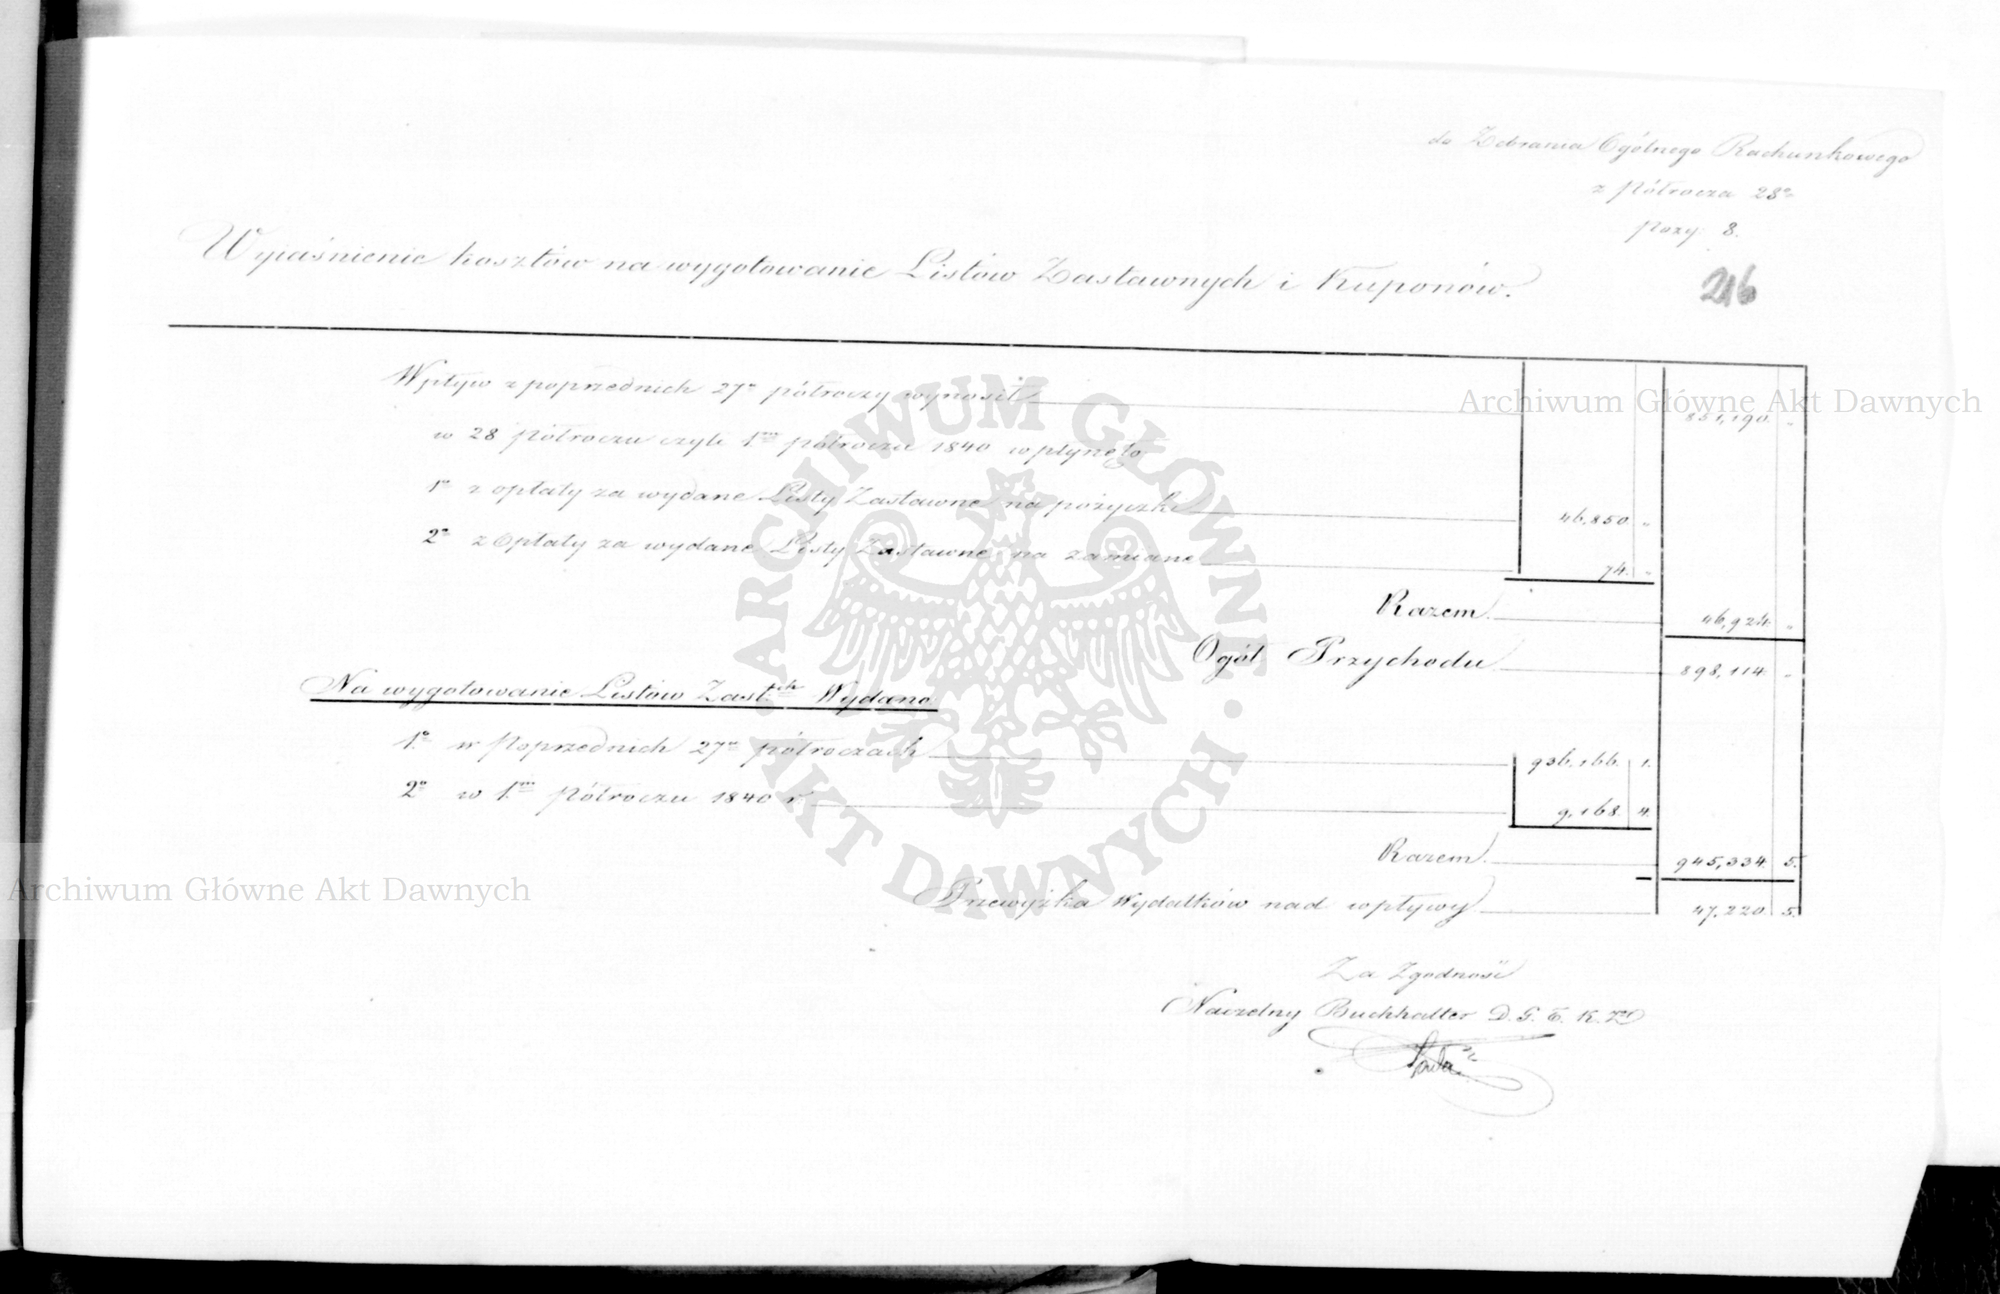 do Zebrania Ogólnego Rachunkowego
z Półrocza 28º
pozy: 8.
Wyjaśnienie kosztów na wygotowanie Listów Zastawnych i Kuponów.
216
Wpływ z poprzednich 27º półroczy wynosił 851,190. "
w 28 Półroczu czyli 1m półroczu 1840 wpłynęło
1º z opłaty za wydane Listy Zastawne na pożyczki 46,850. "
2º z Opłaty za wydane Listy Zastawne na zamianę 74. "
Razem 46,924. "
Ogół Przychodu 898,114. "
Na wygotowanie Listów Zast:ch Wydano
1º w Poprzednich 27u półroczach 936,166. 1.
2º w 1m Półroczu 1840 r. 9,168. 4.
Razem 945,334. 5.
Przewyżka Wydatków nad wpływy 47,220. 5.
Za Zgodność
Naczelny Buchhalter D. G. T. K. Z.
Archiwum Główne Akt Dawnych
Archiwum Główne Akt Dawnych
ARCHIWUM GŁÓWNE · AKT DAWNYCH ·